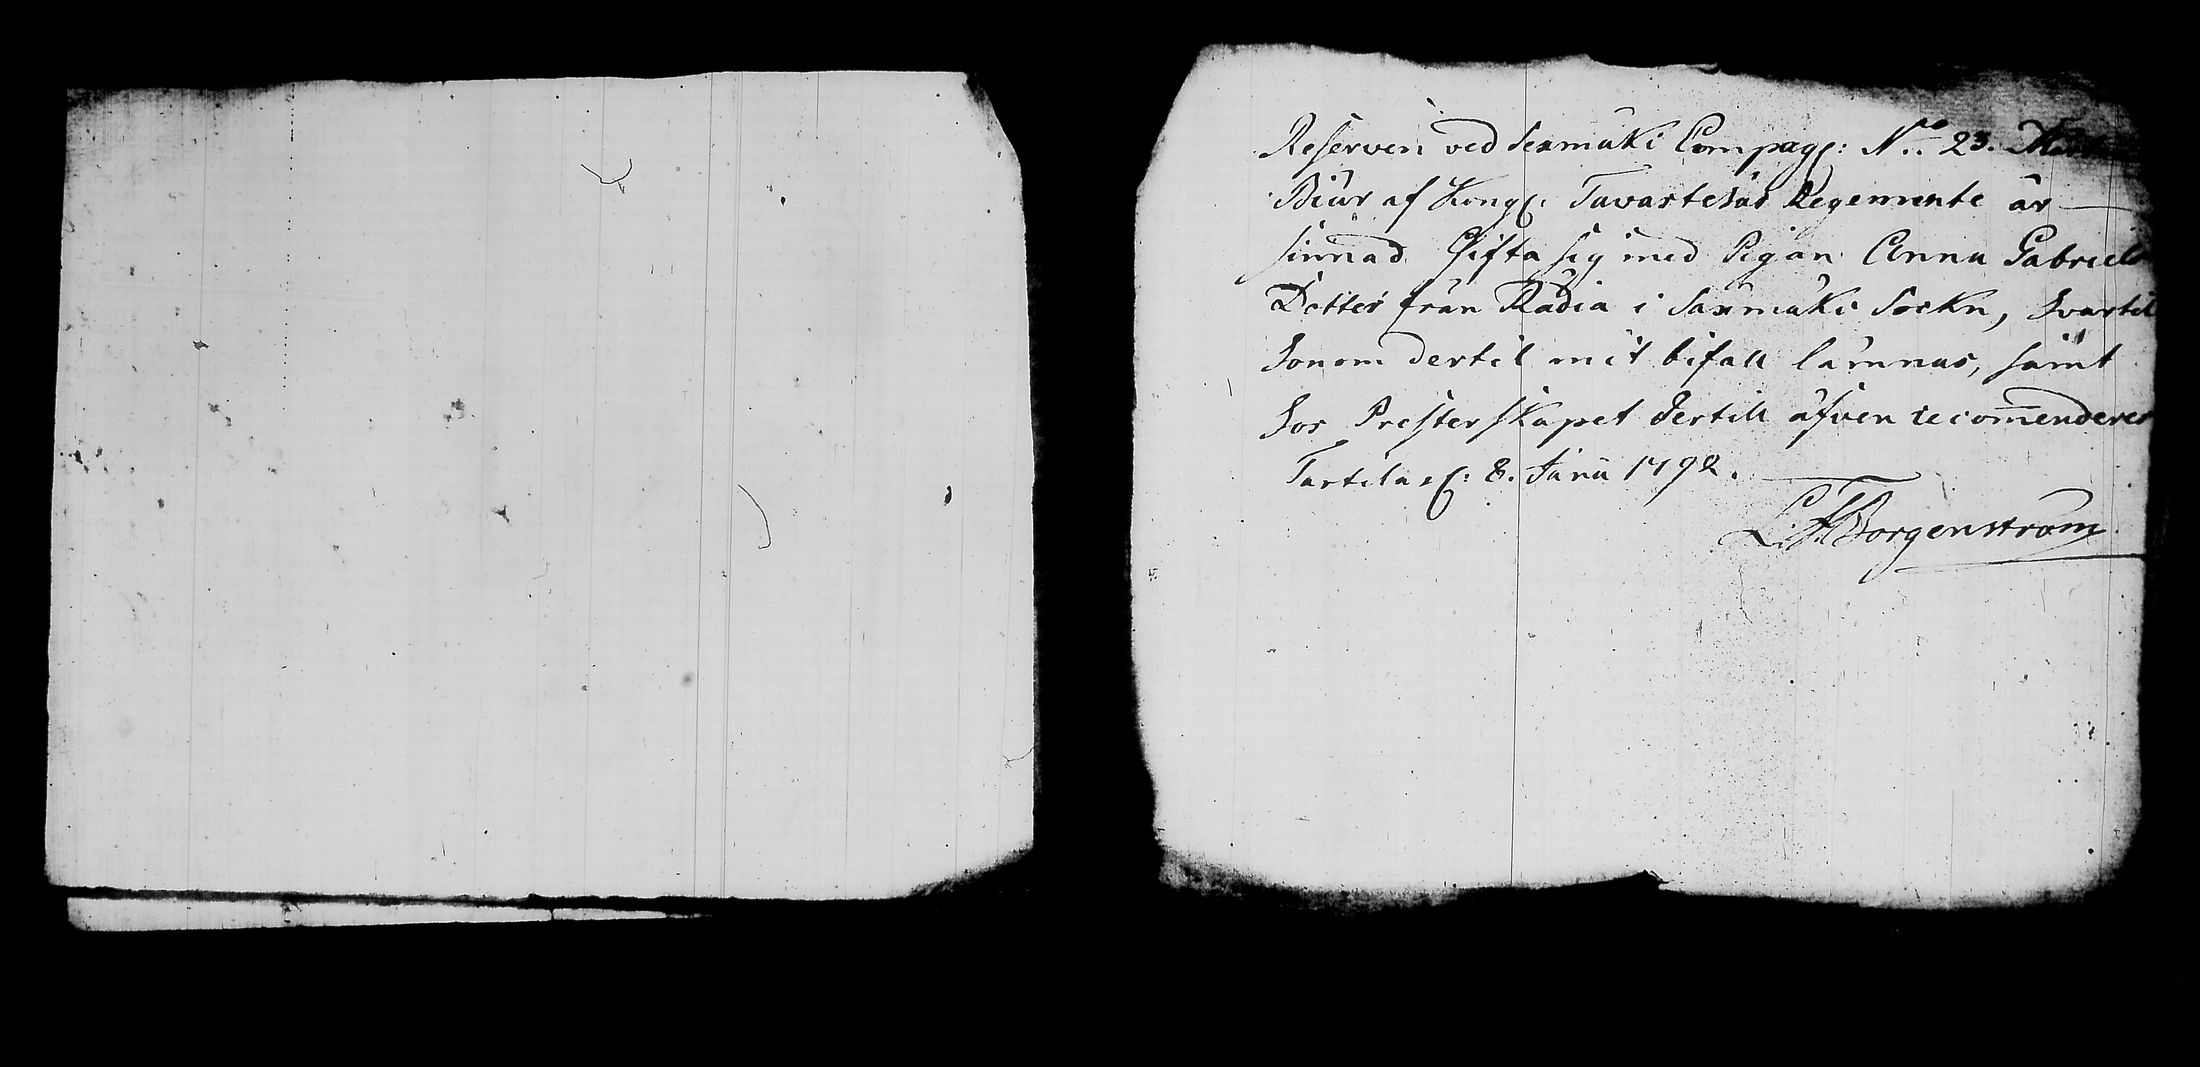 Reserven ved Sexmäki Compagn: No 23.
Biur af Kongl: Tavastehus Regemente är
sinnad Gifta sig med Pigan Anna Gabriels
Dotter från Radia i Saxmäki Sockn, hvartil
honom dertil mit bifall lämnas, samt
hos Presterskapet dertill äfven recomenderes
Tartila d: 8. Janu 1792.
Borgenström